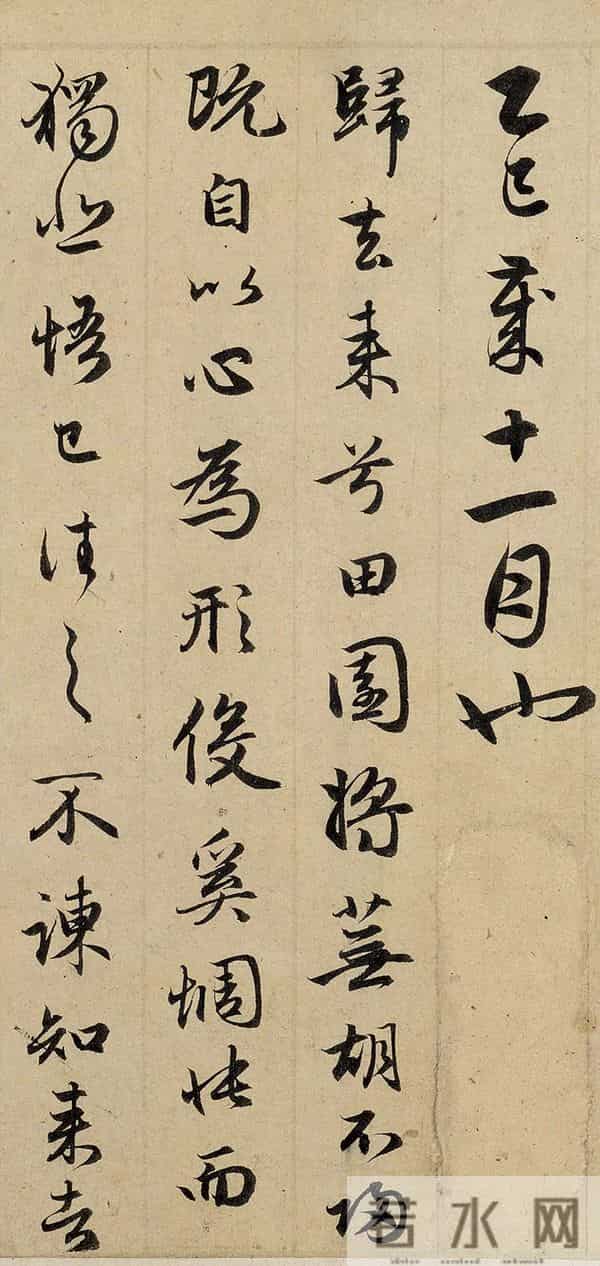 乙巳歲十一月也
歸去来兮田園將蕪胡不歸
既自以心為形役奚惆悵而
獨悲悟已往之不諫知来者
若水网